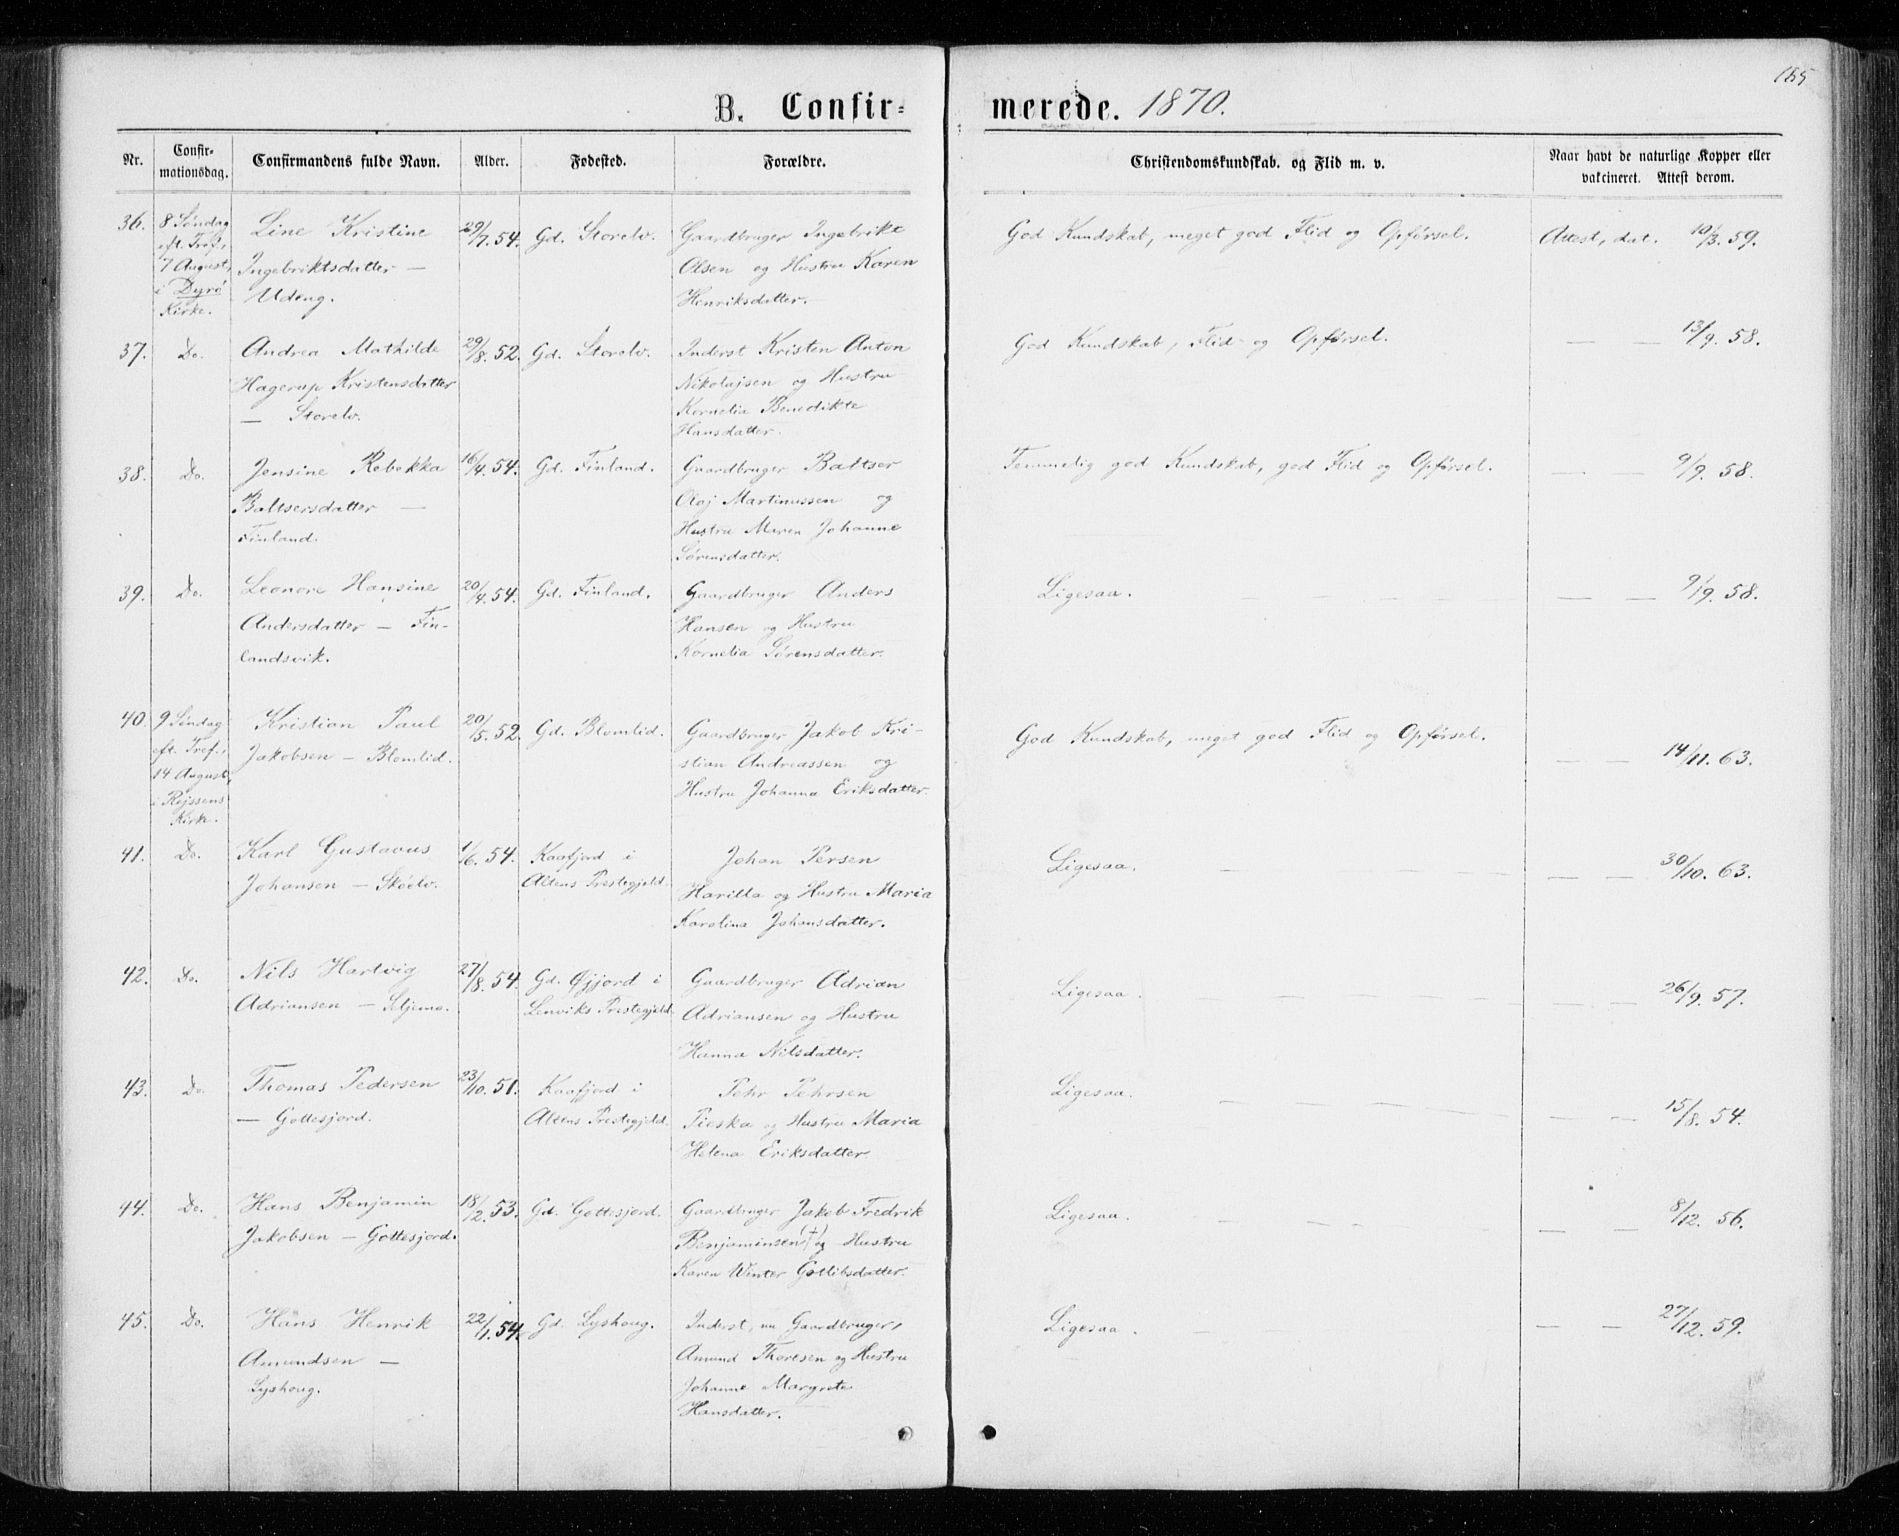 155
B. Confir- merede. 1870.
Nr. Confir-mationsdag. Confirmandens fulde Navn. Alder. Fødested. Forældre. Christendomskundskab. og Flid m. v. Naar havt de naturlige Kopper eller vakcineret. Attest derom.
36. 8 Søndag Line Kristine 29/7. 54. Gd. Storelv. Gaardbruger Ingebrikt God Kundskab, meget god Flid og Opførsel. Attest, dat. 10/3. 59.
eft. Tref., Ingebriktsdatter — Olsen og Hustru Karen
7 August, Udeng. Henriksdatter.
i Dyrø
Kirke.
37. Do. Andrea Mathilde 29/8. 52. Gd. Storelv. Inderst Kristen Anton God Kundskab, Flid og Opførsel. — — 13/9. 58.
Hagerup Kristensdatter Nikolajsen og Hustru
— Storelv. Kornelia Benedikte
Hansdatter.
38. Do. Jensine Rebekka 16/4. 54. Gd. Finland. Gaardbruger Baltser Temmelig god Kundskab, god Flid og Opførsel. — — 9/9. 58.
Baltsersdatter — Olaj Martinussen og
Finland. Hustru Maren Johanne
Sørensdatter.
39. Do. Leonore Hansine 20/4. 54. Gd. Finland. Gaardbruger Anders Ligesaa. — — 9/9. 58.
Andersdatter — Fin- Hansen og Hustru
landsvik. Kornelia Sørensdatter.
40. 9 Søndag Kristian Paul 20/5. 52. Gd. Blomlid. Gaardbruger Jakob Kri- God Kundskab, meget god Flid og Opførsel. — — 14/11. 63.
eft. Tref., Jakobsen — Blomlid. stian Andreassen og
14 August, Hustru Johanna Eriksdatter.
i Rejssens
Kirk.
41. Do. Karl Gustavus 1/6. 54. Kaafjord i Johan Persen Ligesaa. — — 30/10. 63.
Johansen — Skøelv. Altens Prestegjeld. Harilla og Hustru Maria
Karolina Johansdatter.
42. Do. Nils Hartvig 27/8. 54. Gd. Øjjord i Gaardbruger Adrian Ligesaa. — — 26/9. 57.
Adriansen — Seljemo. Lenviks Prestegjeld. Adriansen og Hustru
Hanna Nilsdatter.
43. Do. Thomas Pedersen 23/10. 51. Kaafjord i Pehr Pehrsen Ligesaa. — — 15/8. 54.
— Gottesjord. Altens Prestegjeld. Pieska og Hustru Maria
Helena Eriksdatter
44. Do. Hans Benjamin 18/2. 53. Gd. Gottesjord. Gaardbruger Jakob Fredrik Ligesaa. — — 8/12. 56.
Jakobsen — Gottesjord. Benjaminsen (+) og Hustru
Karen Winter Gotlibsdatter.
45. Do. Hans Henrik 22/1. 54. Gd. Lyshoug. Inderst, nu Gaardbruger, Ligesaa. — — 27/12. 59.
Amundsen — Amund Thoresen og Hustru
Lyshoug. Johanne Margrete
Hansdatter.